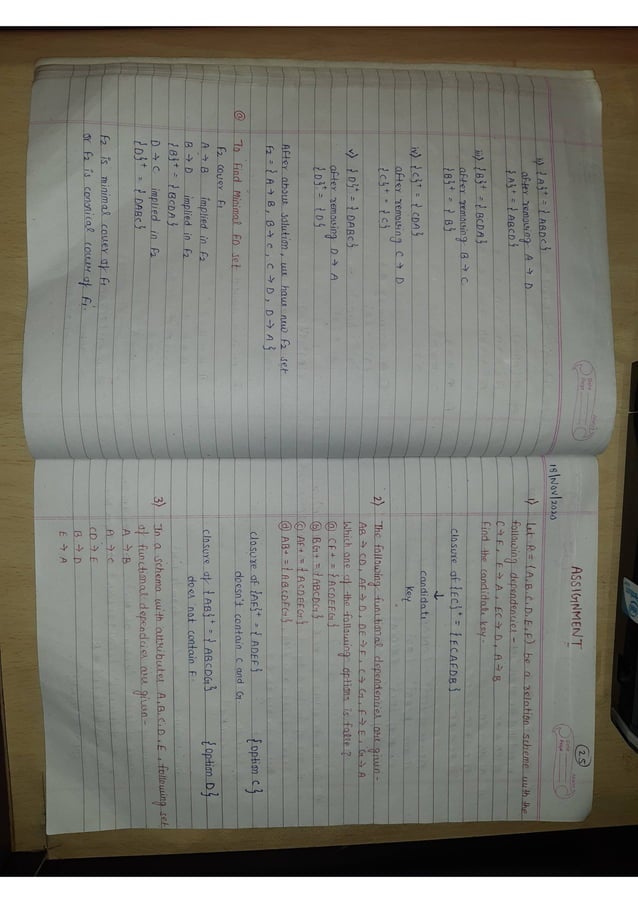 ii) {A}+ = {ABDC}
after removing A → D
{A}+ = {ABCD}
iii) {B}+ = {BCDA}
after removing B → C
{B}+ = {B}
iv) {C}+ = {CDA}
after removing C → D
{C}+ = {C}
v) {D}+ = {DABC}
after removing D → A
{D}+ = {D}
After above solution, we have new F2 set
F2 = {A → B, B → C, C → D, D → A}
@ To find Minimal FD set
F2 cover F1
A → B implied in F2
B → D implied in F2
{B}+ = {BCDA}
D → C implied in F2
{D}+ = {DABC}
F2 is minimal cover of F1
or F2 is canonical cover of F1.
25
ASSIGNMENT
18/Nov/2020
1) Let R = {A,B,C,D,E,F} be a relation scheme with the
following dependencies -
C → F, E → A, EC → D, A → B
Find the candidate key.
closure of {EC}+ = {ECAFDB}
↓
candidate
key
2) The following functional dependencies are given -
AB → CD, AF → D, DE → F, C → G, F → E, G → A
Which one of the following options is false?
(a) CF+ = {ACDEFG}
(b) BG+ = {ABCDG}
(c) AF+ = {ACDEFG}
(d) AB+ = {ABCDFG}
closure of {AF}+ = {ADEF} {option C}
doesn't contain C and G
closure of {AB}+ = {ABCDG} {option D}
does not contain F.
3) In a schema with attributes A,B,C,D,E, following set
of functional dependcies are given -
A → B
A → C
CD → E
B → D
E → A